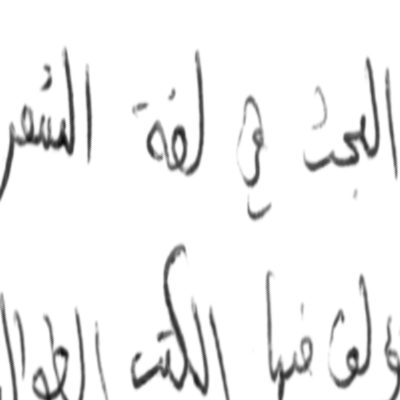 البحث في لغة الشعر
ولف فيها الكتب الطوال